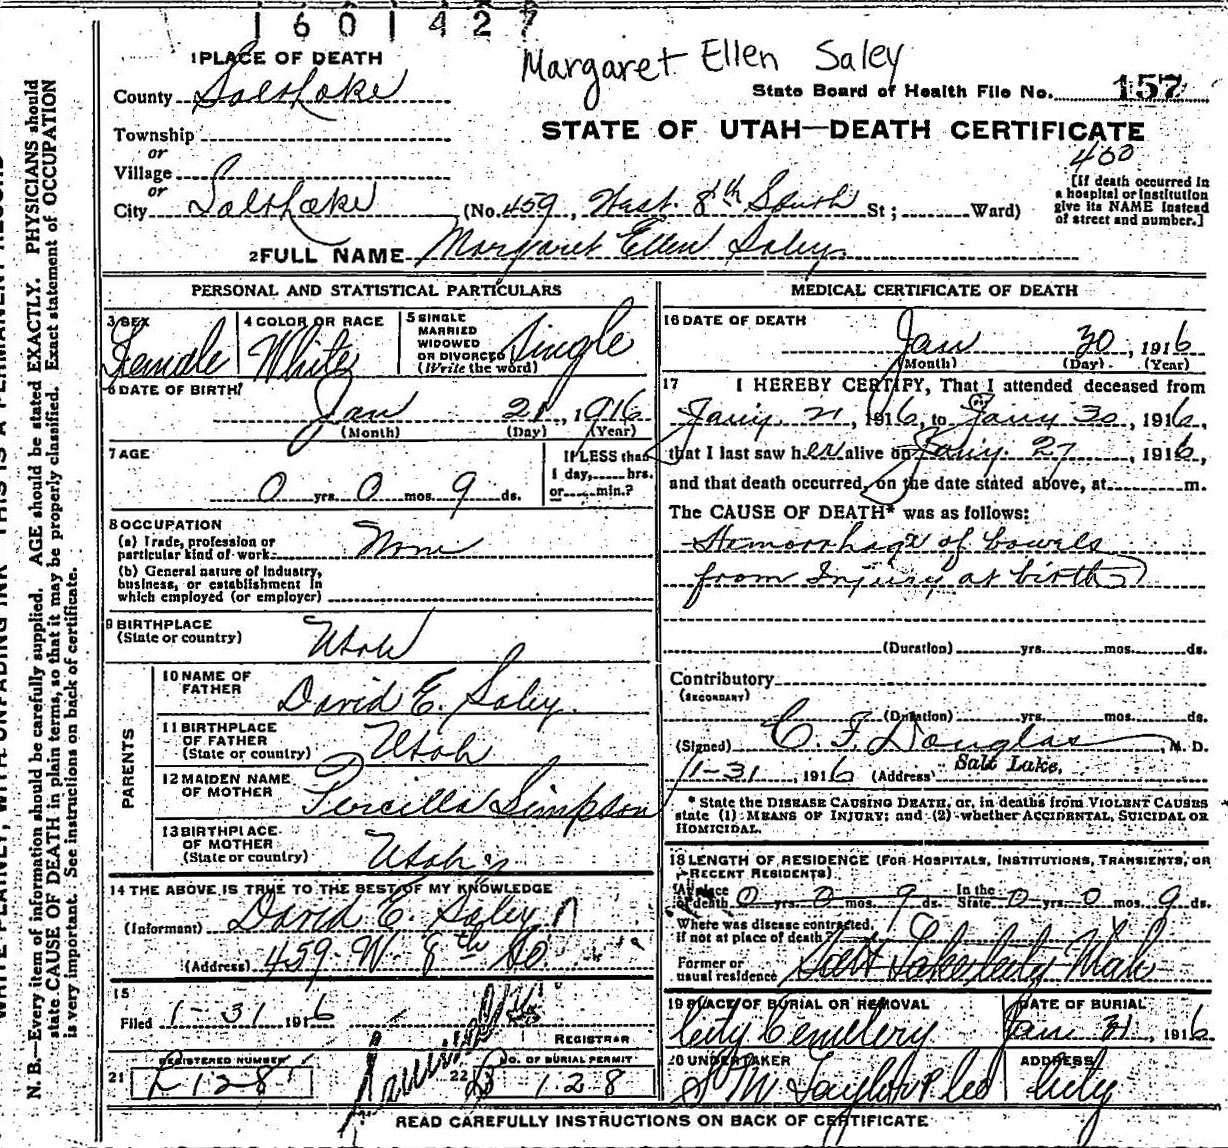 1601427
Margaret Ellen Saley
1 PLACE OF DEATH
County Salt Lake
State Board of Health File No. 157
STATE OF UTAH—DEATH CERTIFICATE
400
Township
or
Village
or
City Salt Lake (No. 459, West 8th South St; Ward)
[If death occurred in
a hospital or institution
give its NAME instead
of street and number.]
2 FULL NAME Margaret Ellen Saley
PERSONAL AND STATISTICAL PARTICULARS
3 SEX
Female
4 COLOR OR RACE
White
5 SINGLE
MARRIED
WIDOWED
OR DIVORCED
(Write the word)
Single
6 DATE OF BIRTH
Jan 21, 1916
(Month) (Day) (Year)
7 AGE
0 yrs. 0 mos. 9 ds.
If LESS than
1 day, hrs.
or min.?
8 OCCUPATION
(a) Trade, profession or
particular kind of work None
(b) General nature of industry,
business, or establishment in
which employed (or employer)
9 BIRTHPLACE
(State or country) Utah
PARENTS
10 NAME OF
FATHER David E. Saley.
11 BIRTHPLACE
OF FATHER
(State or country) Utah
12 MAIDEN NAME
OF MOTHER Percilla Simpson
13 BIRTHPLACE
OF MOTHER
(State or country) Utah
14 THE ABOVE IS TRUE TO THE BEST OF MY KNOWLEDGE
(Informant) David E. Saley
(Address) 459 W. 8th So
15
Filed 1-31 1916
REGISTRAR
REGISTERED NUMBER
21 128
22 NO. OF BURIAL PERMIT
128
MEDICAL CERTIFICATE OF DEATH
16 DATE OF DEATH
Jan 30, 1916
(Month) (Day) (Year)
17 I HEREBY CERTIFY, That I attended deceased from
Jany. 21, 1916, to Jany 30, 1916,
that I last saw her alive on Jany. 27, 1916,
and that death occurred, on the date stated above, at m.
The CAUSE OF DEATH* was as follows:
Hemorrhage of bowels
from Injury at birth
(Duration) yrs. mos. ds.
Contributory
(SECONDARY)
(Duration) yrs. mos. ds.
(Signed) C. F. Douglas, M. D.
1-31, 1916 (Address) Salt Lake.
* State the DISEASE CAUSING DEATH, or, in deaths from VIOLENT CAUSES
state (1) MEANS OF INJURY; and (2) whether ACCIDENTAL, SUICIDAL OR
HOMICIDAL.
18 LENGTH OF RESIDENCE (FOR HOSPITALS, INSTITUTIONS, TRANSIENTS, OR
RECENT RESIDENTS)
At place
of death 0 yrs. 0 mos. 9 ds. In the
State 0 0 9 ds.
Where was disease contracted,
if not at place of death?
Former or
usual residence Salt Lake City Utah
19 PLACE OF BURIAL OR REMOVAL
City Cemetery
DATE OF BURIAL
Jan 31, 1916
20 UNDERTAKER
S M Taylor & Co
ADDRESS
City
READ CAREFULLY INSTRUCTIONS ON BACK OF CERTIFICATE
N. B.—Every item of information should be carefully supplied. AGE should be stated EXACTLY. PHYSICIANS should
state CAUSE OF DEATH in plain terms, so that it may be properly classified. Exact statement of OCCUPATION
is very important. See instructions on back of certificate.